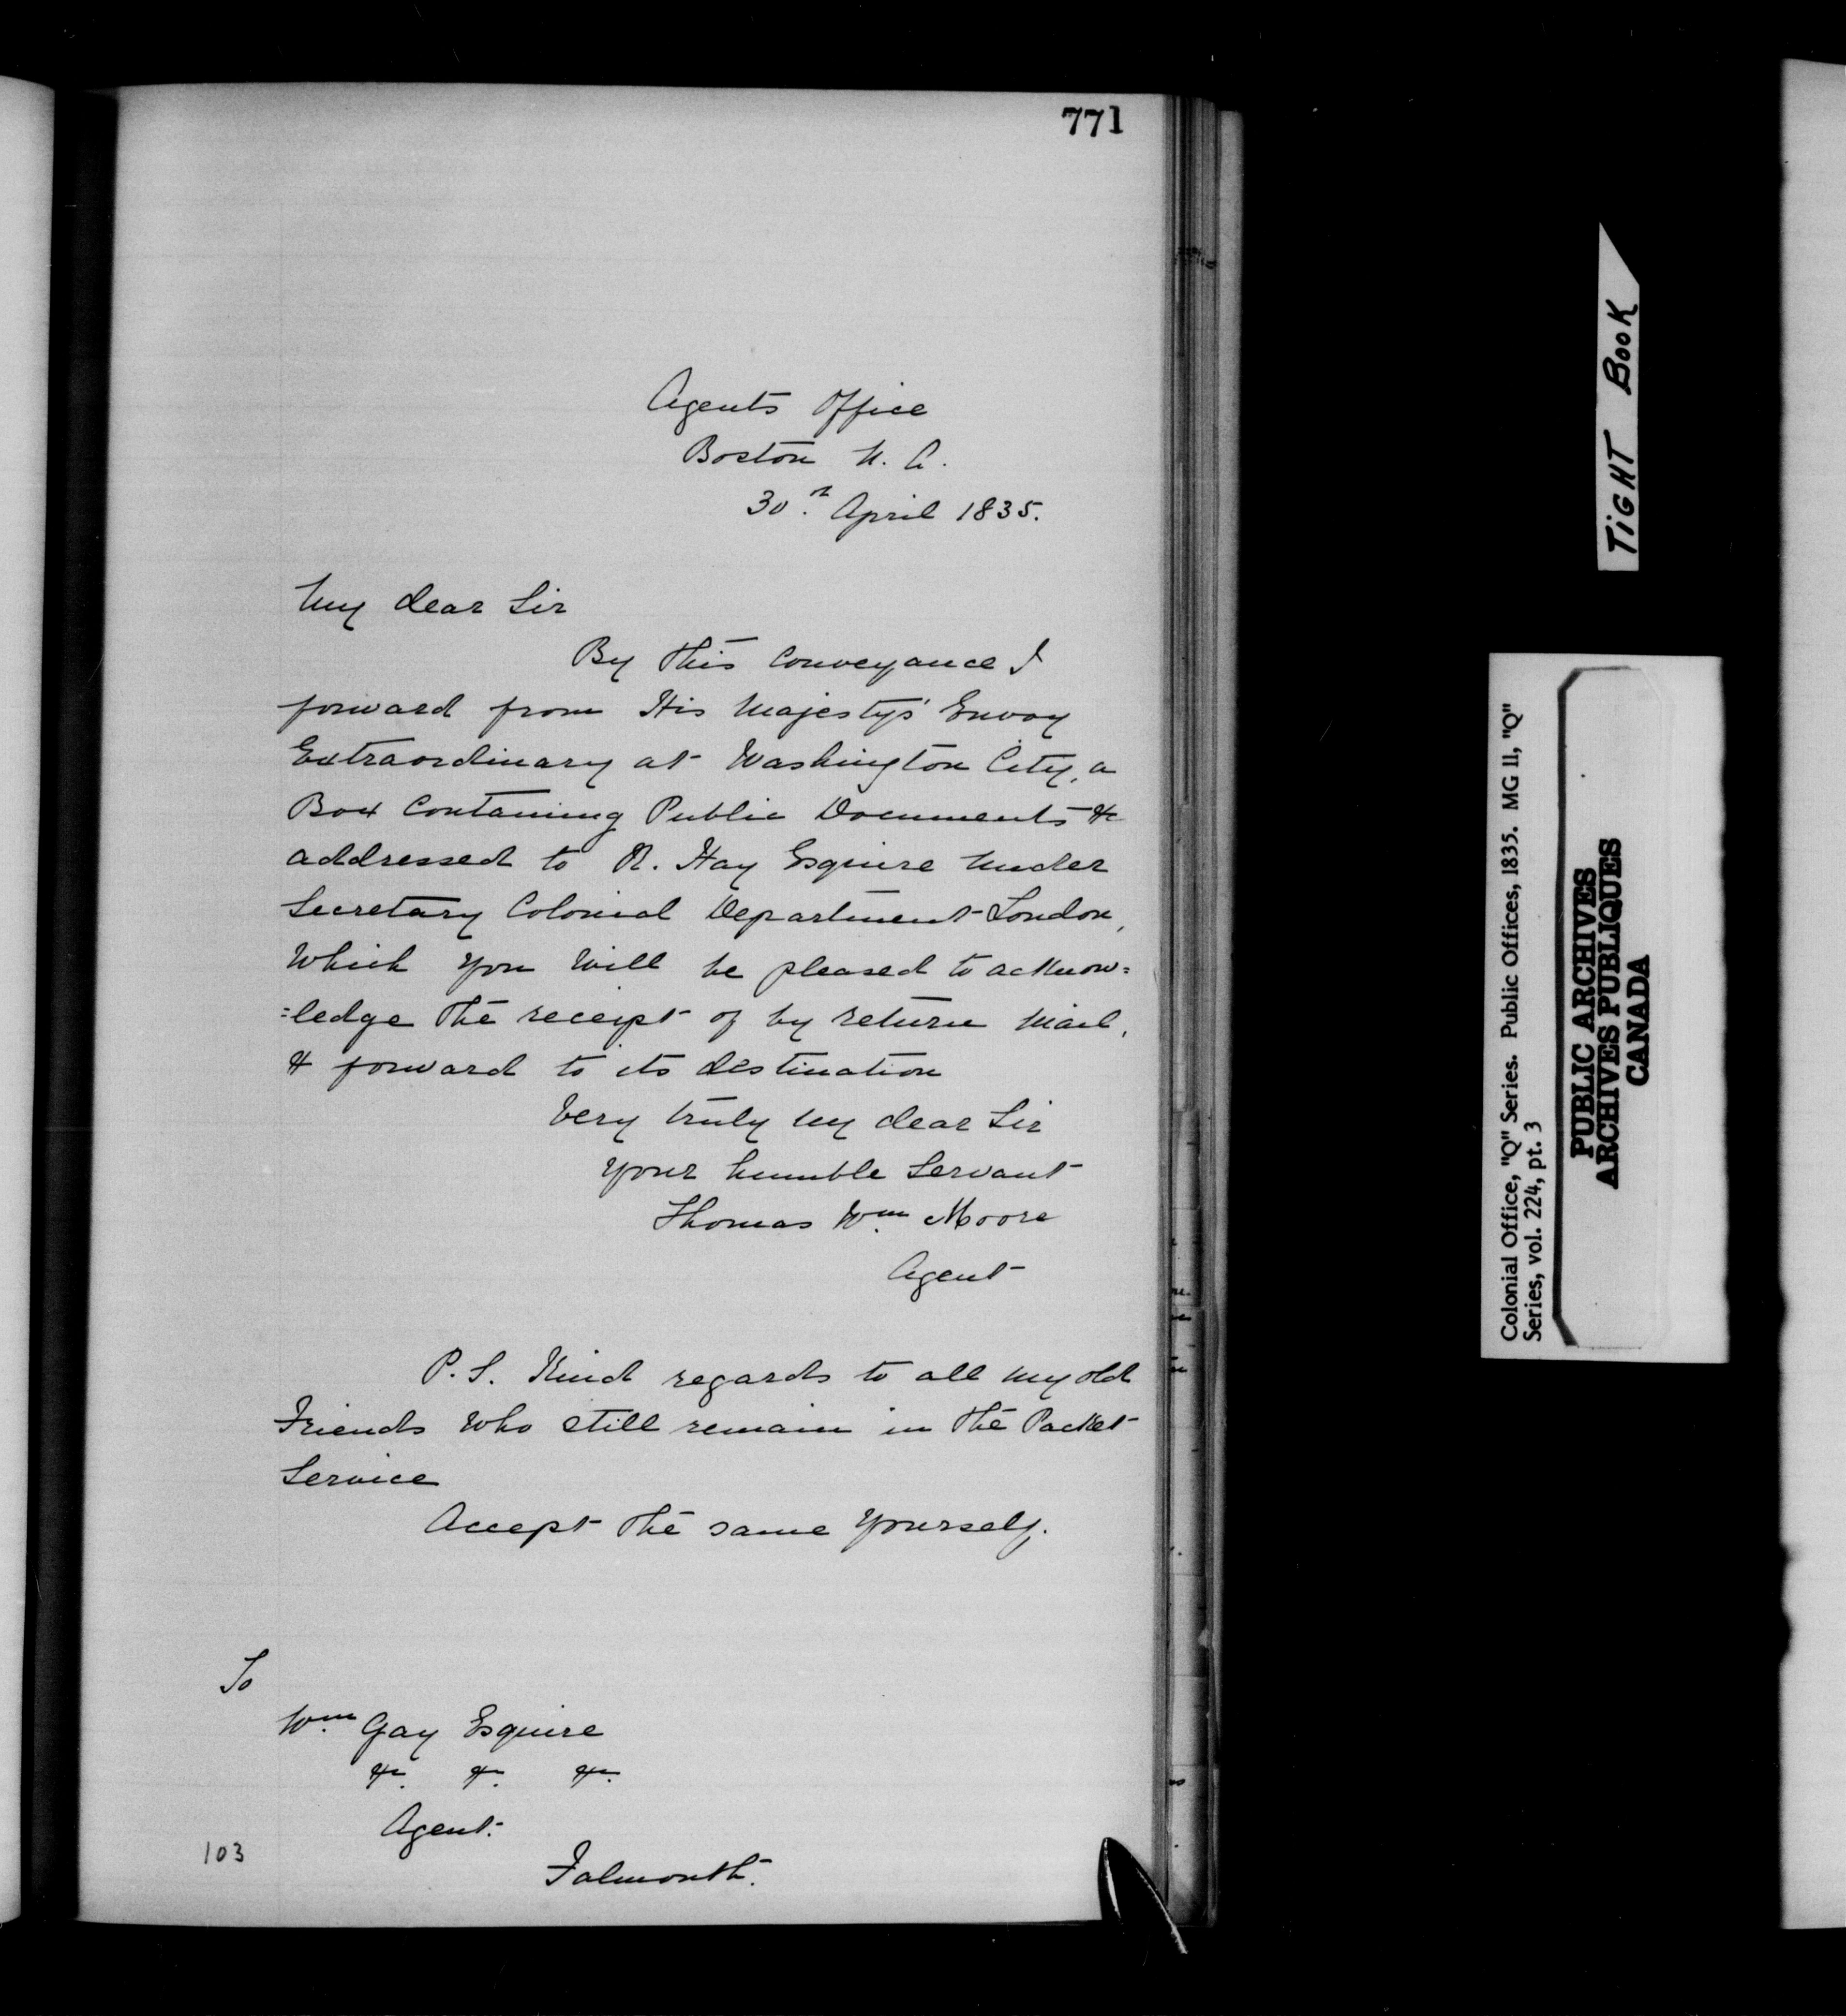 771
Agents Office
Boston N. A.
30th April 1835.
My dear Sir
By this Conveyance I
forward from His Majestys' Envoy
Extraordinary at Washington City, a
Box Containing Public Documents &c
addressed to R. Hay Esquire Under
Secretary Colonial Department London,
Which you Will be pleased to acknow=
=ledge the receipt of by return Mail,
& forward to its destination
Very truly my dear Sir
Your humble Servant
Thomas Wm Moore
Agent
P. S. Kind regards to all my old
Friends Who still remain in the Packet
Service
Accept the same Yourself.
To
Wm Gay Esquire
&c. &c. &c.
Agent.
Falmouth.
103
TIGHT BOOK
Colonial Office, "Q" Series. Public Offices, 1835. MG 11, "Q"
Series, vol. 224, pt. 3
PUBLIC ARCHIVES
ARCHIVES PUBLIQUES
CANADA